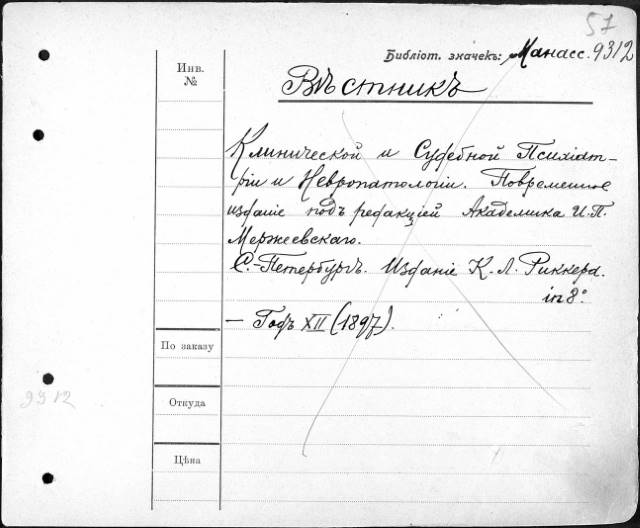 57
Библіот. значекъ: Манасс. 9312
Инв.
№
Вѣстникъ
Клинической и Судебной Психіат-
ріи и Невропатологіи. Повременное
изданіе подъ редакціей Академика И. П.
Мержеевскаго.
С.-Петербургъ. Изданіе К. Л. Риккера.
in 8°
— Годъ XII (1897).
По заказу
9312
Откуда
Цѣна